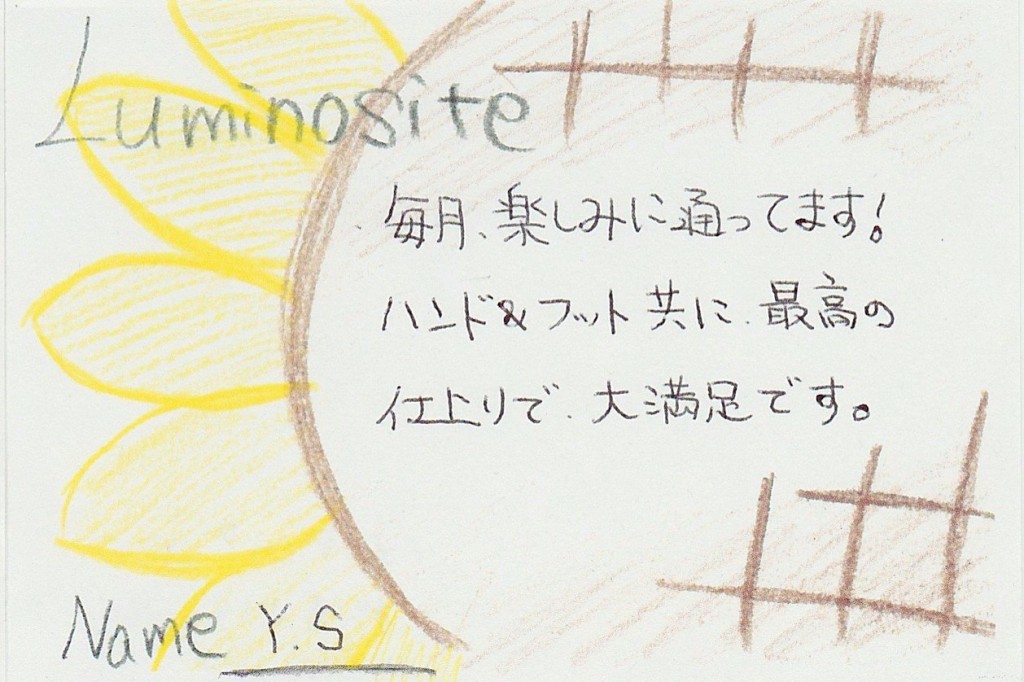 Luminosite
毎月、楽しみに通ってます!
ハンド&フット共に、最高の
仕上りで、大満足です。
Name Y.S